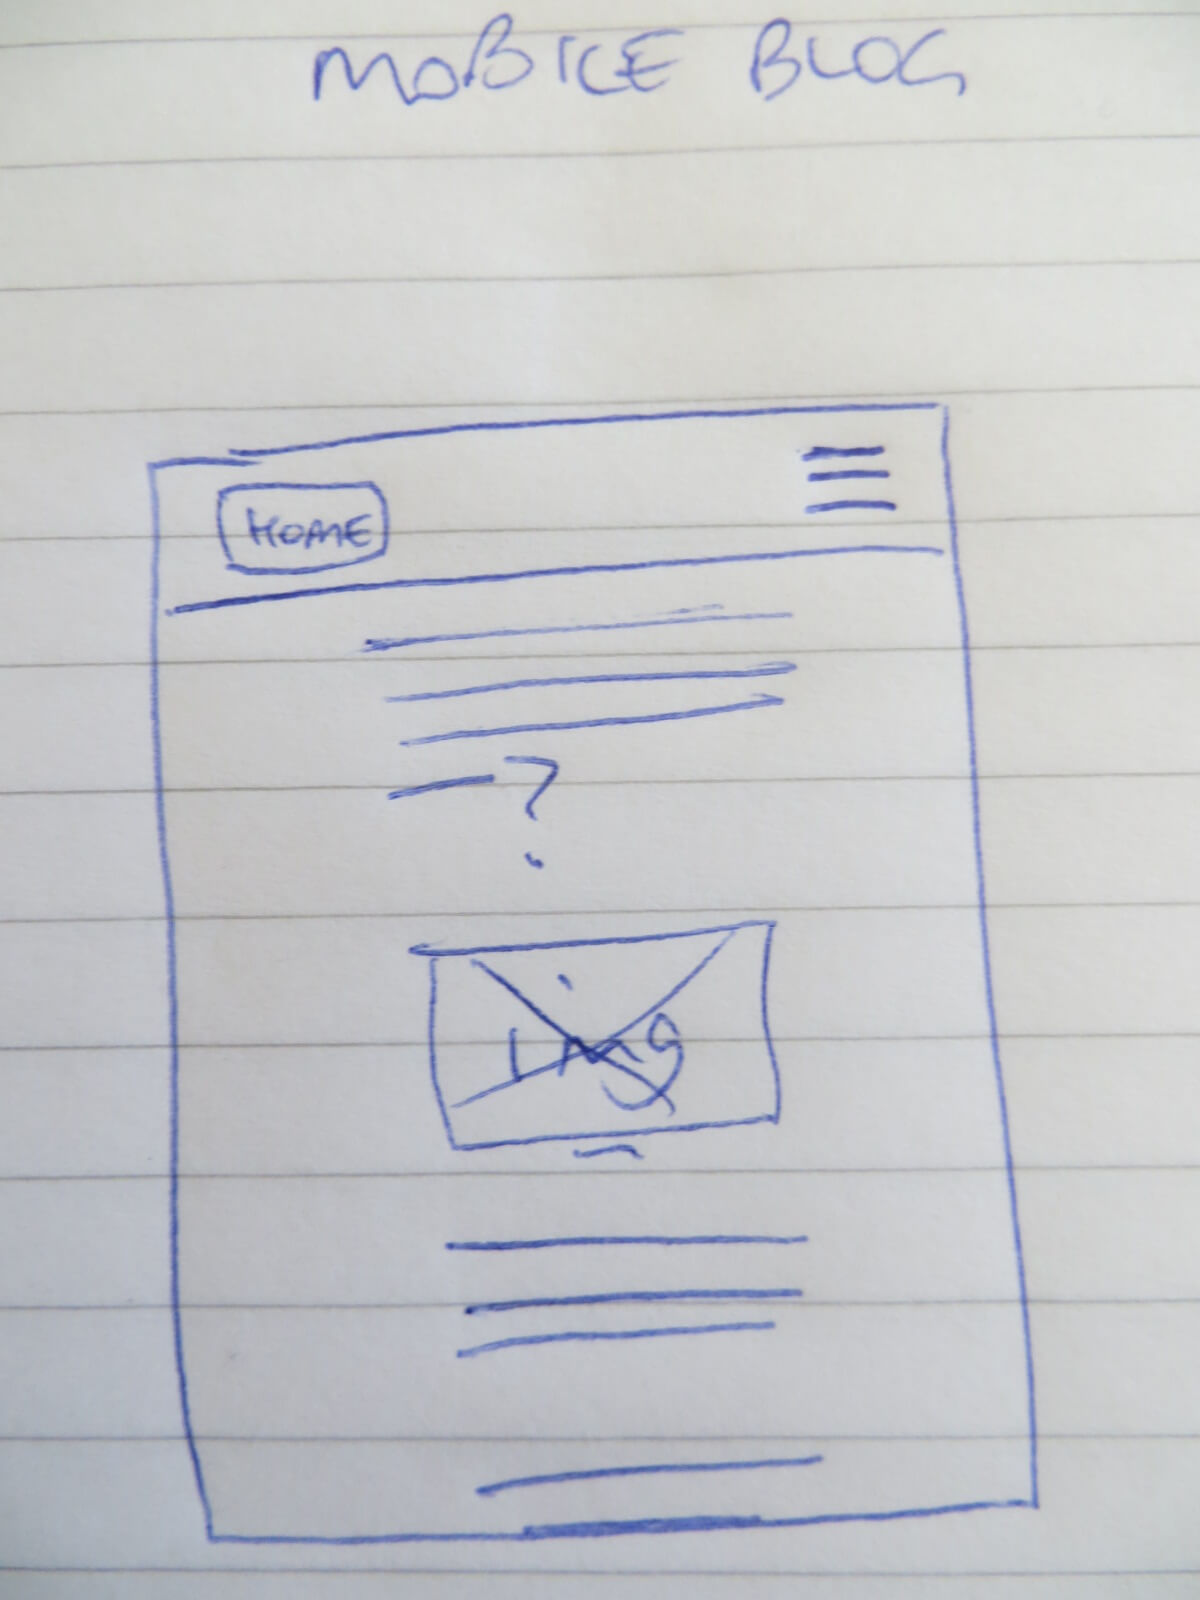 MOBILE BLOG
HOME
?
img